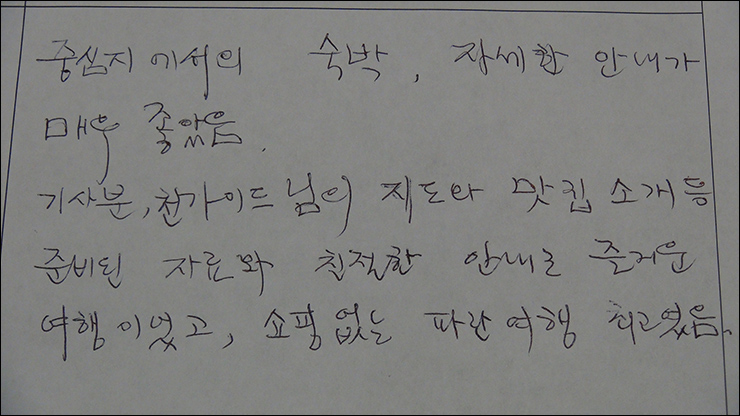 중심지에서의 숙박, 자세한 안내가
매우 좋았음.
기사분, 천가이드님의 지도와 맛집 소개 등
준비된 자료와 친절한 안내로 즐거운
여행이었고, 쇼핑없는 파란여행 최고였음.